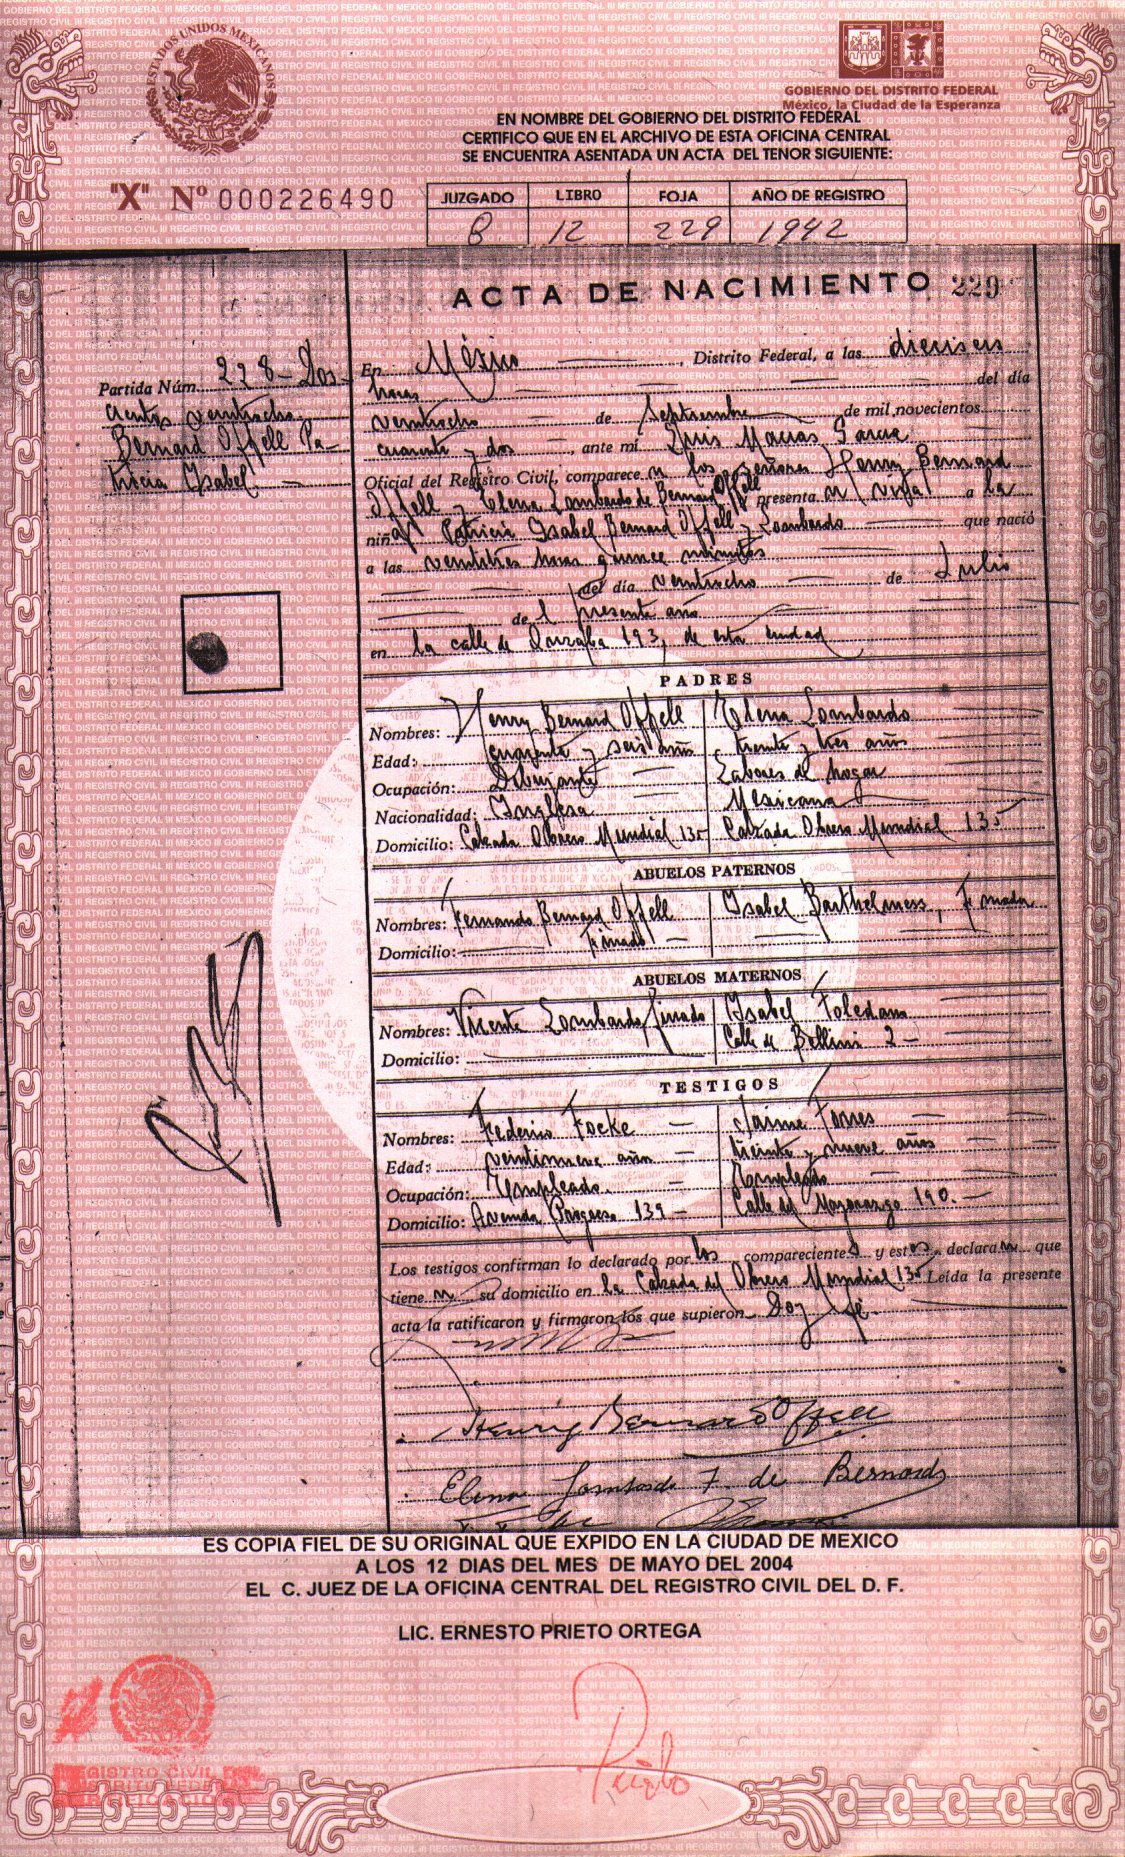 ESTADOS UNIDOS MEXICANOS
GOBIERNO DEL DISTRITO FEDERAL
México, la Ciudad de la Esperanza
EN NOMBRE DEL GOBIERNO DEL DISTRITO FEDERAL
CERTIFICO QUE EN EL ARCHIVO DE ESTA OFICINA CENTRAL
SE ENCUENTRA ASENTADA UN ACTA DEL TENOR SIGUIENTE:
"X" Nº 000226490
JUZGADO LIBRO FOJA AÑO DE REGISTRO
8 12 229 1942
ACTA DE NACIMIENTO 229
Partida Núm. 228 - Dos-
cientos veintiocho.
Bernard Offell Pa-
tricia Isabel.
En México, Distrito Federal, a las dieciseis
horas del día
veintiocho de Septiembre de mil novecientos
cuarenta y dos, ante mí Luis Macías García
Oficial del Registro Civil, comparecen los señores Henry Bernard
Offell y Elena Lombardo de Bernard Offell y presentan viva a la
niña Patricia Isabel Bernard Offell y Lombardo que nació
a las veintitres horas quince minutos
del día veintiocho de Julio
del presente año
en la calle de Orizaba 193, de esta ciudad
PADRES
Nombres: Henry Bernard Offell Elena Lombardo
Edad: cuarenta y seis años treinta y tres años
Ocupación: Dibujante Labores del hogar
Nacionalidad: Inglesa Mexicana
Domicilio: Calzada Obrero Mundial 135 Calzada Obrero Mundial 135
ABUELOS PATERNOS
Nombres: Fernando Bernard Offell Isabel Barthelness, Finada
Finado
Domicilio:
ABUELOS MATERNOS
Nombres: Vicente Lombardo, finado Isabel Toledano
Domicilio: Calle de Bellini 2
TESTIGOS
Nombres: Federico Focke Jaime Torres
Edad: veintinueve años treinta y nueve años
Ocupación: Empleado. Empleado
Domicilio: Avenida Progreso 139 Calle del Mayorazgo 190.
Los testigos confirman lo declarado por los comparecientes y estos declaran que
tienen su domicilio en la Calzada del Obrero Mundial 135 Leída la presente
acta la ratificaron y firmaron los que supieron Doy fé.
Henry Bernard Offell
Elena Lombardo T. de Bernard
ES COPIA FIEL DE SU ORIGINAL QUE EXPIDO EN LA CIUDAD DE MEXICO
A LOS 12 DIAS DEL MES DE MAYO DEL 2004
EL C. JUEZ DE LA OFICINA CENTRAL DEL REGISTRO CIVIL DEL D. F.
LIC. ERNESTO PRIETO ORTEGA
Prieto
REGISTRO CIVIL DEL
DISTRITO FEDERAL